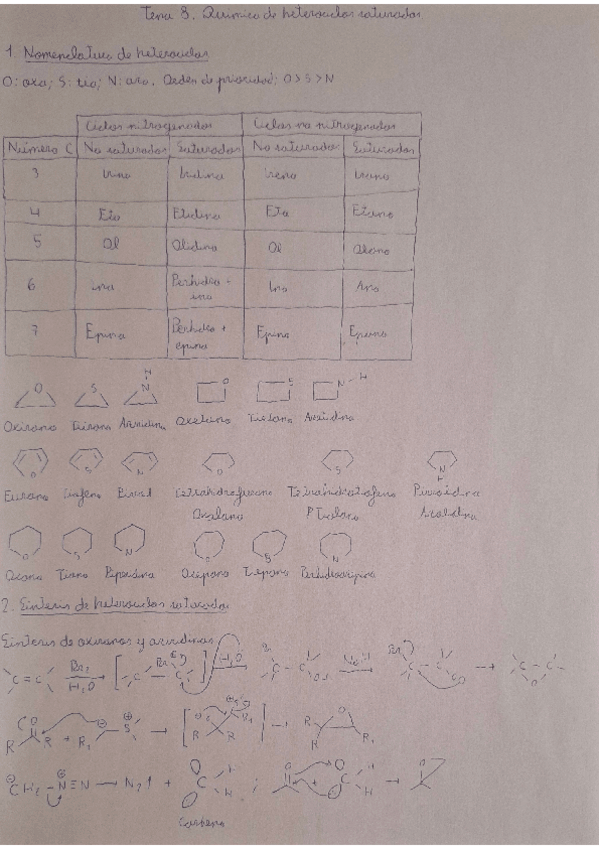 Tema 8. Química de heterociclos saturados
1. Nomenclatura de heterociclos
O: oxa; S: tio; N: aza. Orden de prioridad: O > S > N
Ciclos nitrogenados Ciclos no nitrogenados
Número C No saturados Saturados No saturados Saturados
3 Irina Iridina Ireno Irano
4 Eto Etidina Eta Etano
5 Ol Olidina Ol Olano
6 ina Perhidro + ina Ino Ano
7 Epina Perhidro + epina Epino Epano
O S H N O S N H
Oxirano Tiirano Aziridina Oxetano Tietano Azetidina
O S N O S N H
Furano Tiofeno Pirrol Tetrahidrofurano Tetrahidrotiofeno Pirrolidina
Oxolano Tiolano Azolidina
O S N O S N
Oxano Tiano Piperidina Oxepano Tiepano Perhidroazepina
2. Síntesis de heterociclos saturados
Síntesis de oxiranos y aziridinas
C=C Br₂ H₂O Br C C H₂O Br C C OH NaH Br C C O C C O
O R R + R₁ S O S R₁ R R O R R R₁
CH₂ N≡N N₂↑ + C H H ; O + C H H O
Carbeno